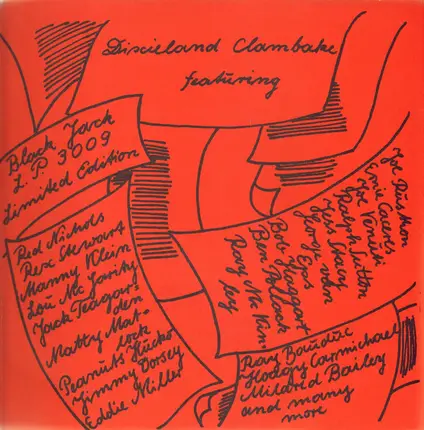 Dixieland Clambake
featuring
Black Jack
L. P. 3009
Limited Edition
Red Nichols
Rex Stewart
Manny Klein
Lou Mc Garity
Jack Teagar-
den
Matty Mat-
lock
Peanuts Hucko
Jimmy Dorsey
Eddie Miller
Joe Rushton
Ernie Caceres
Joe Venuti
Ralph Sutton
Jess Stacy
George van
Eps
Bob Haggart
Ben Pollack
Ray Mc Kin-
ley
Ray Bauduc
Hoagy Carmichael
Mildred Bailey
and many
more